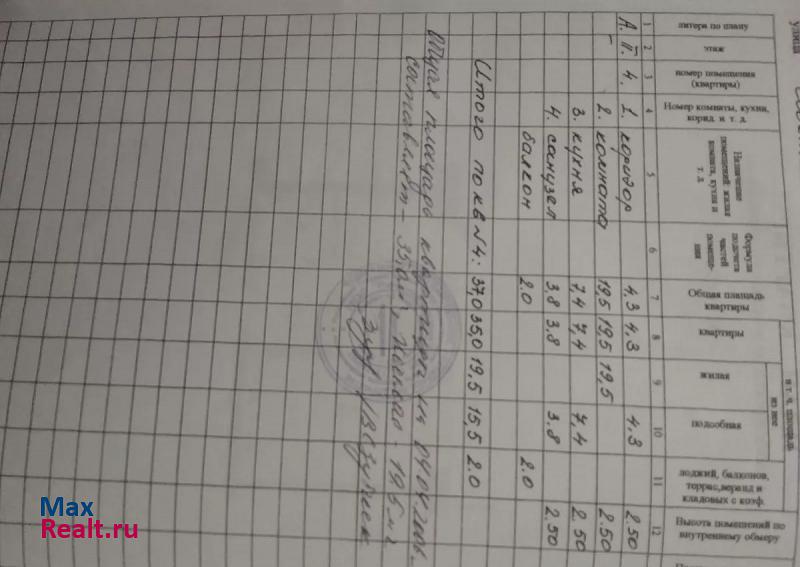 улица
литера по плану
этаж
номер помещения (квартиры)
Номер комнаты, кухни, корид. и т. д.
Назначение помещений: жилая комната, кухня и т. д.
Формула подсчета частей помещения
Общая площадь квартиры
в т. ч. площадь
квартиры
из нее
жилая
подсобная
лоджий, балконов, террас, веранд и кладовых с коэф.
Высота помещений по внутреннему обмеру
1 2 3 4 5 6 7 8 9 10 11 12
А. II. 4. 1. коридор 4,3 4,3 4,3 2.50
2. комната 19,5 19,5 19,5 2.50
3. кухня 7,4 7,4 7,4 2.50
4. санузел 3,8 3.8 3.8 2.50
балкон 2.0 2.0
Итого по кв №4: 37,0 35,0 19,5 15,5 2.0
Общая площадь квартиры на 04.04.2006.
составляет - 35,0м², жилая - 19,5 м²
Max
Realt.ru